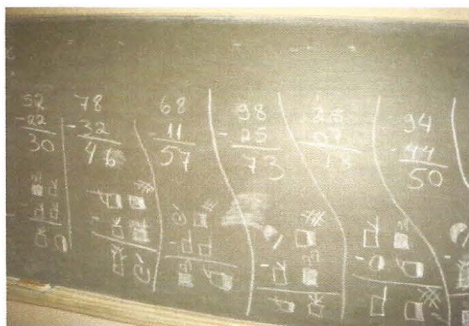 52
-22
30
78
-32
46
68
-11
57
98
-25
73
94
-44
50